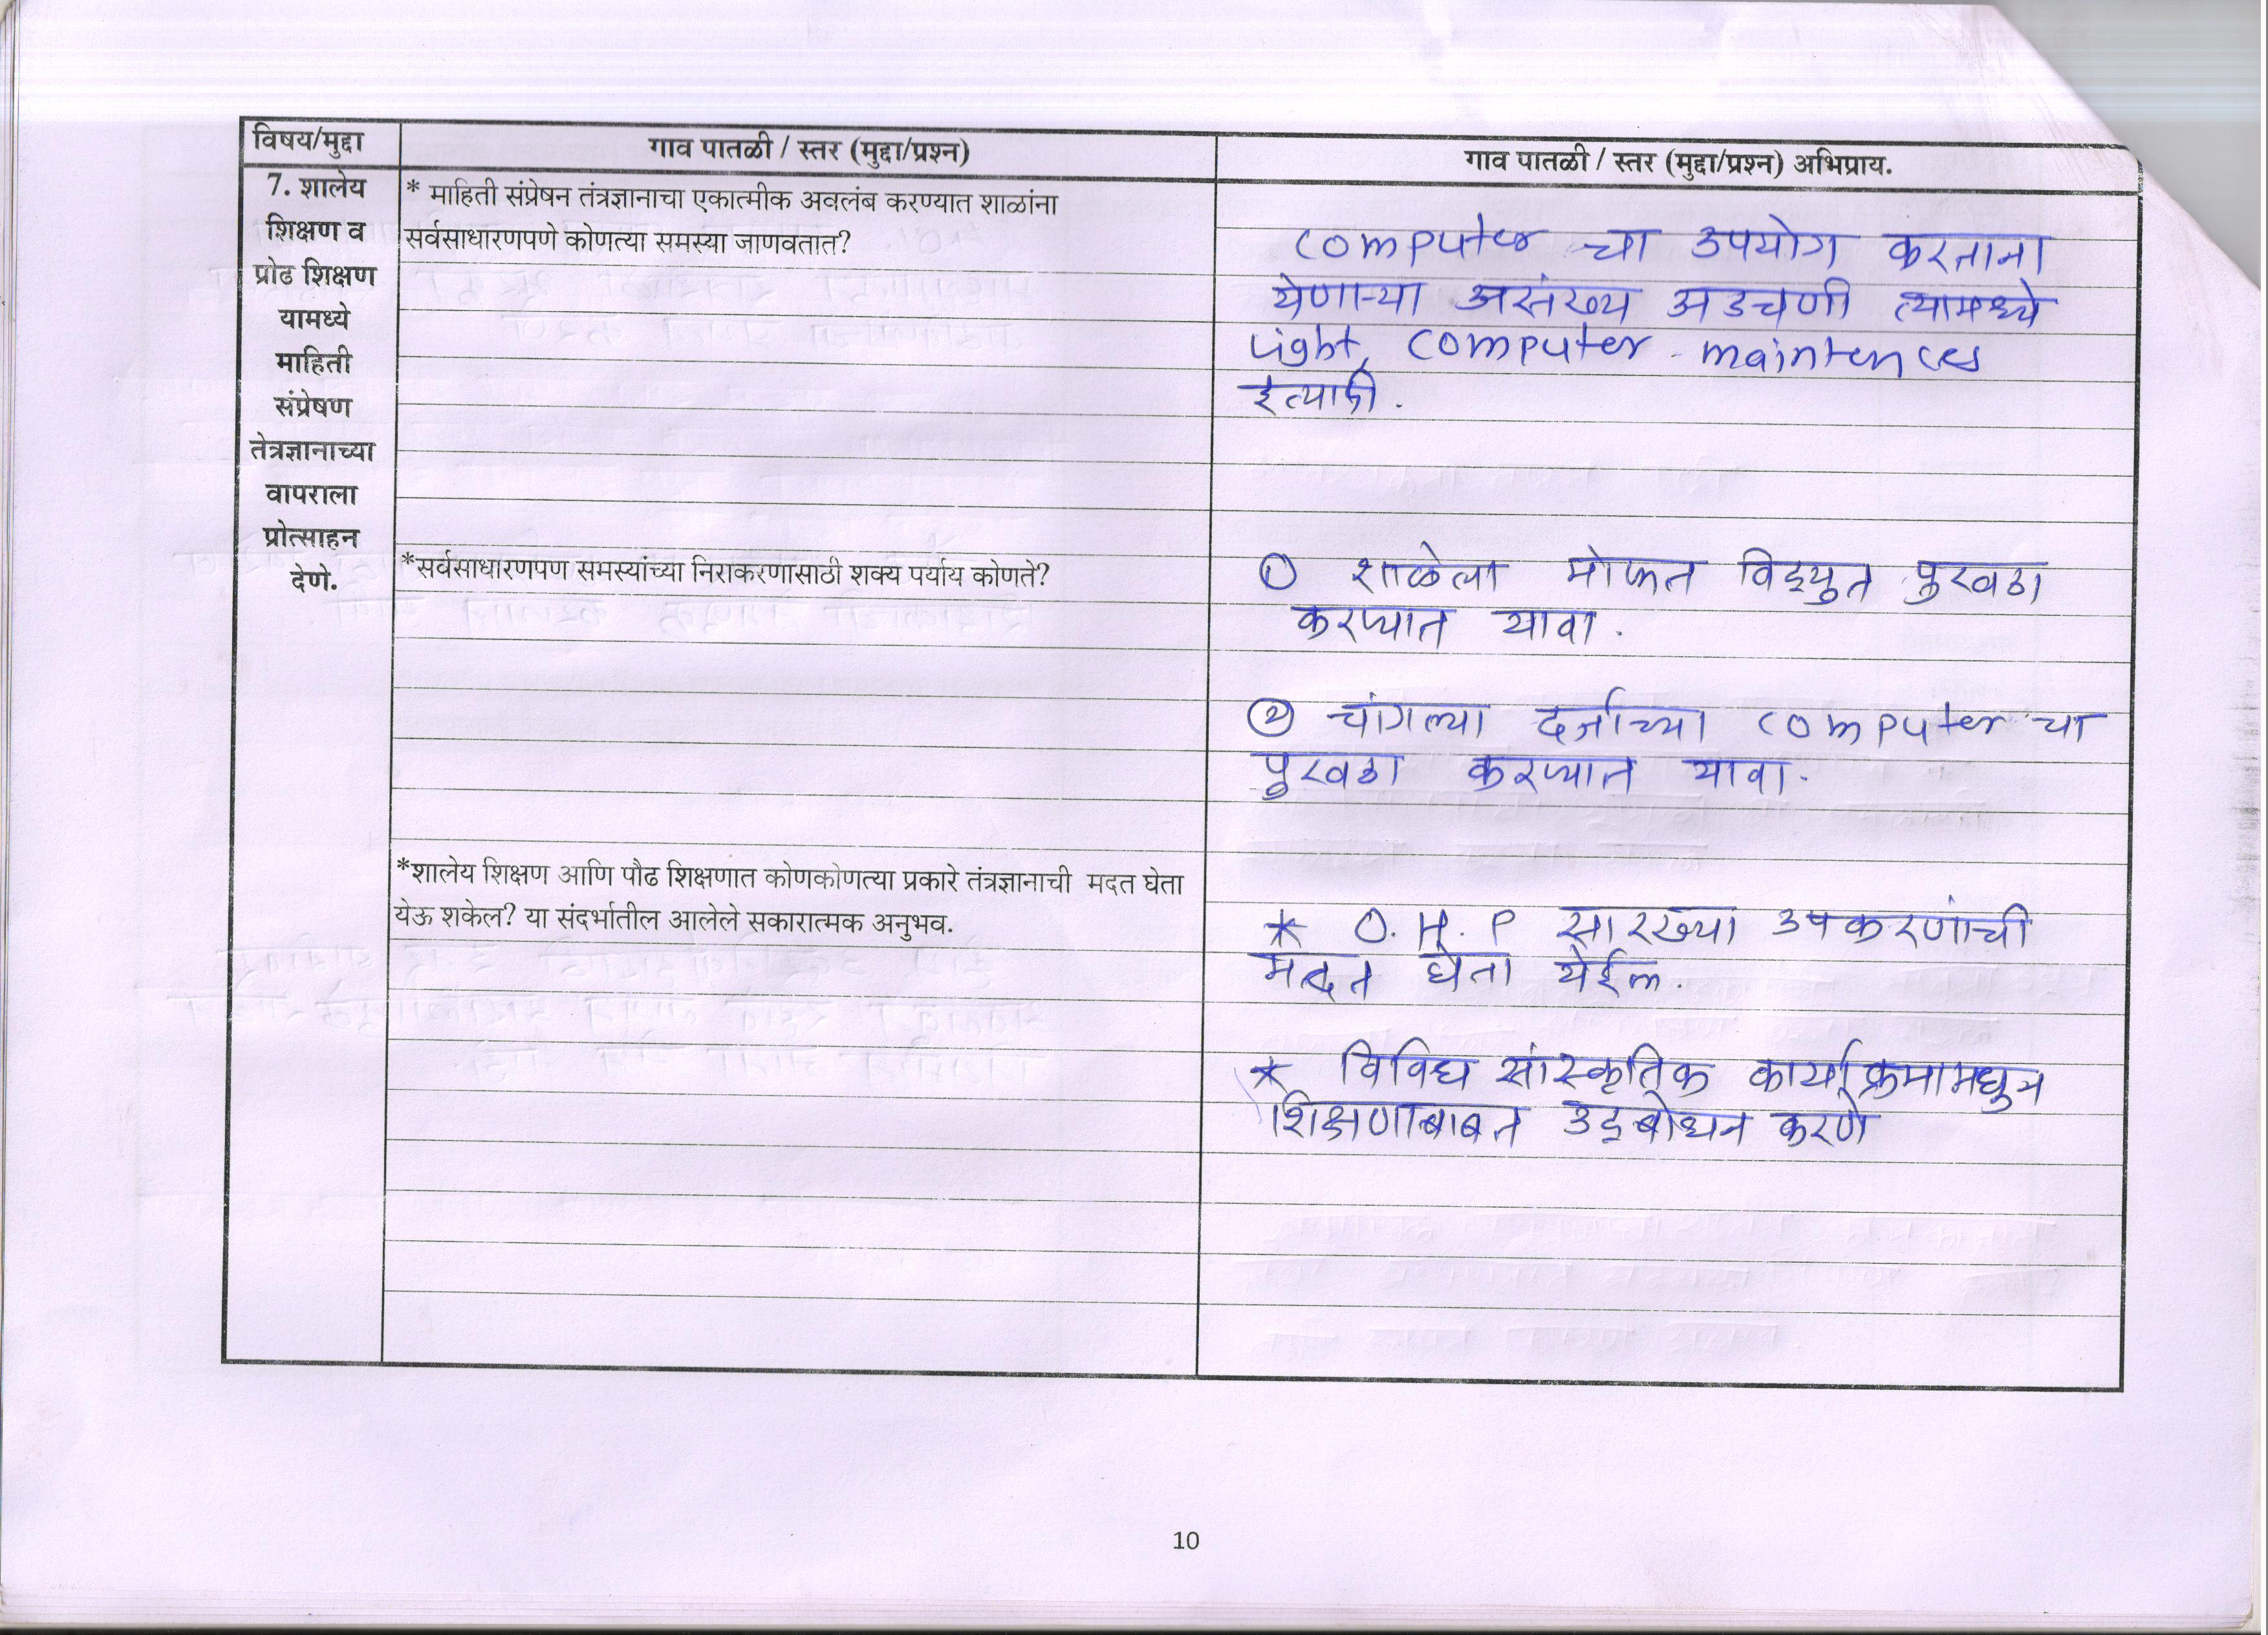 विषय/मुद्दा
गाव पातळी / स्तर (मुद्दा/प्रश्न)
गाव पातळी / स्तर (मुद्दा/प्रश्न) अभिप्राय.
7. शालेय
शिक्षण व
प्रोढ शिक्षण
यामध्ये
माहिती
संप्रेषण
तेत्रज्ञानाच्या
वापराला
प्रोत्साहन
देणे.
* माहिती संप्रेषन तंत्रज्ञानाचा एकात्मीक अवलंब करण्यात शाळांना
सर्वसाधारणपणे कोणत्या समस्या जाणवतात?
computer चा उपयोग करताना
येणाऱ्या असंख्य अडचणी त्यामध्ये
light, computer maintences
इत्यादी.
*सर्वसाधारणपण समस्यांच्या निराकरणासाठी शक्य पर्याय कोणते?
① शाळेला मोफत विद्युत पुरवठा
करण्यात यावा.
② चांगल्या दर्जाच्या computer चा
पुरवठा करण्यात यावा.
*शालेय शिक्षण आणि पौढ शिक्षणात कोणकोणत्या प्रकारे तंत्रज्ञानाची मदत घेता
येऊ शकेल? या संदर्भातील आलेले सकारात्मक अनुभव.
* O. H. P सारख्या उपकरणांची
मदत घेता येईल.
* विविध सांस्कृतिक कार्याक्रमामधुन
शिक्षणाबाबत उद्बोधन करणे
10